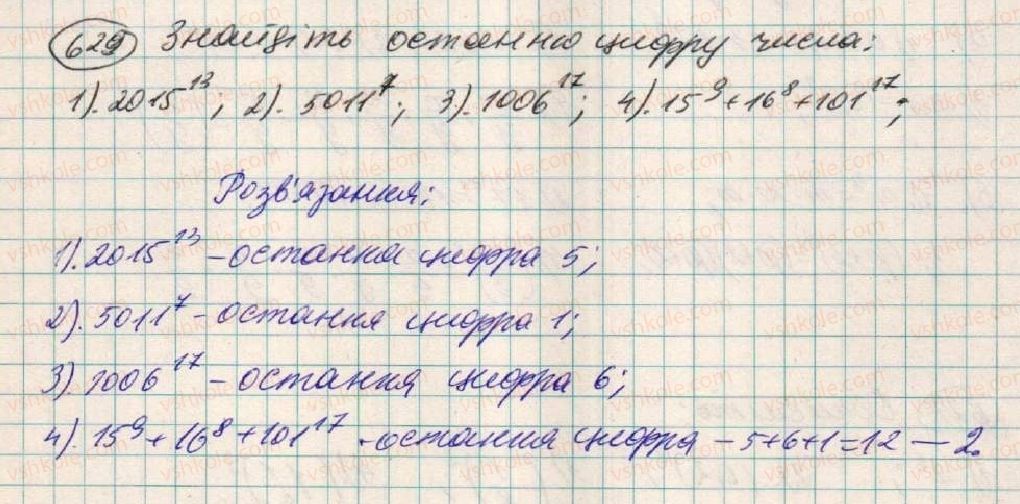 629 Знайдіть останню цифру числа:
1). 2015^13; 2). 5011^7; 3). 1006^17; 4). 15^9+16^8+101^17;
Розв'язання:
1). 2015^13 – остання цифра 5;
2). 5011^7 – остання цифра 1;
3). 1006^17 – остання цифра 6;
4). 15^9+16^8+101^17 - остання цифра – 5+6+1=12 — 2.